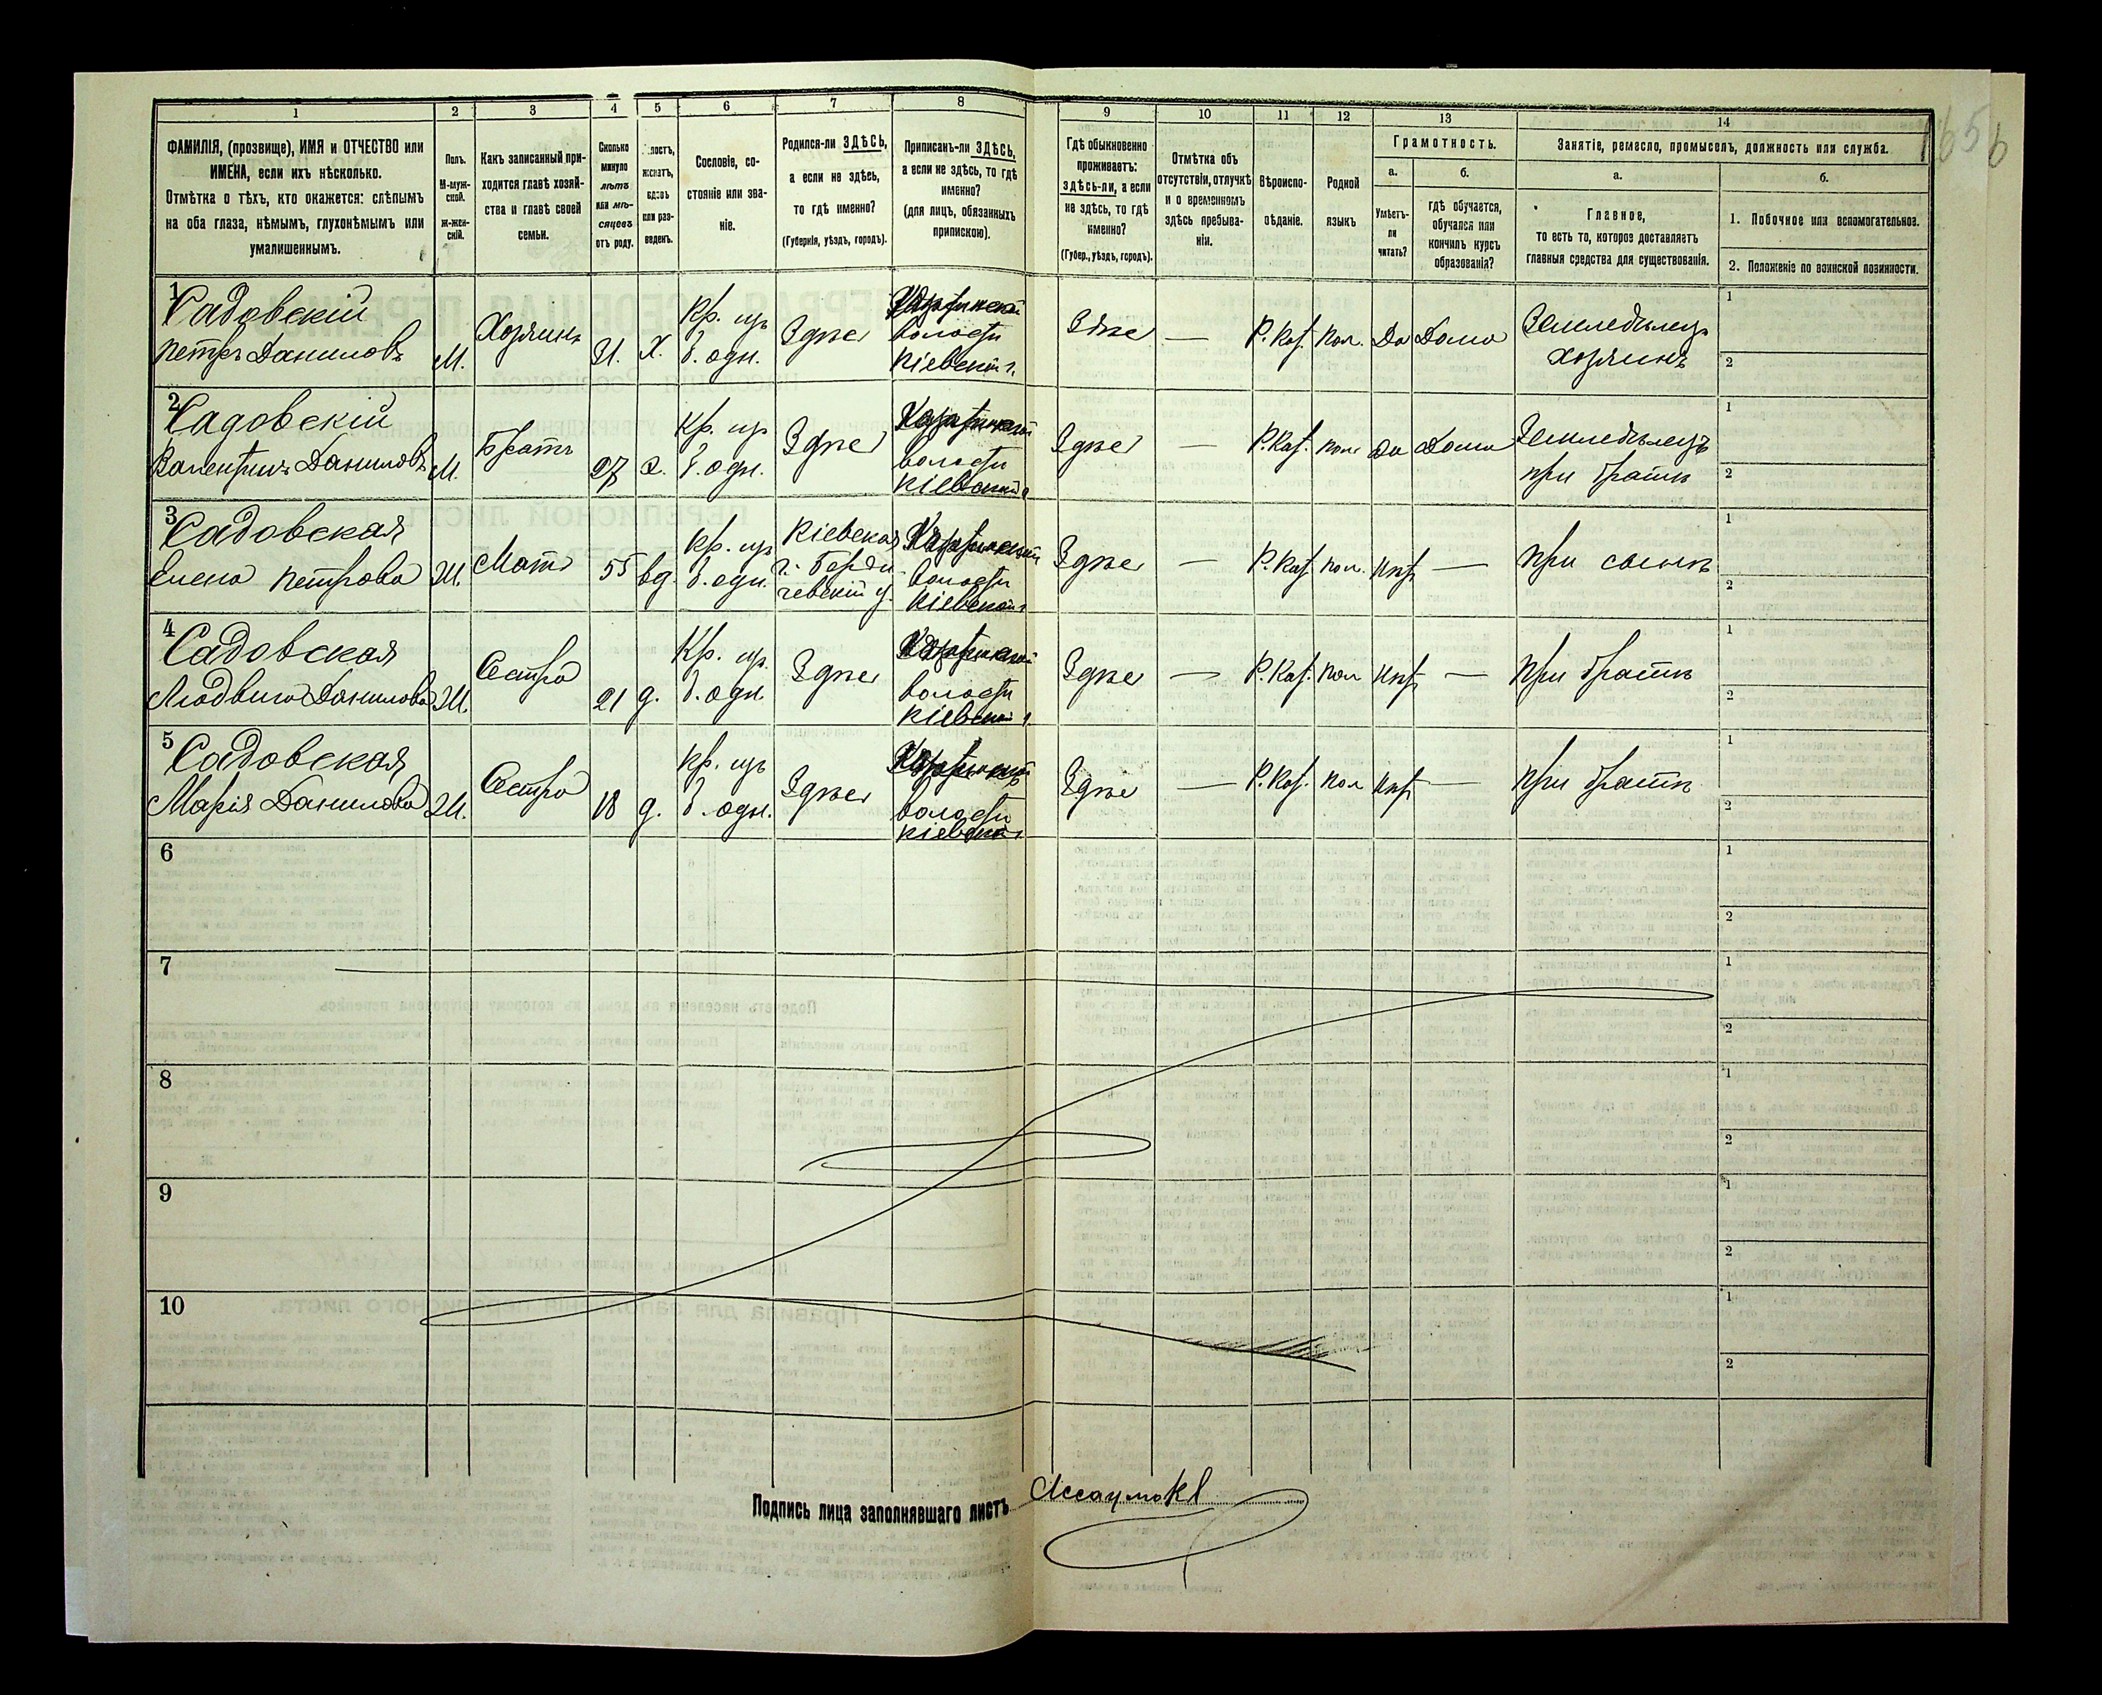 1
2
3
4
5
6
7
8
9
10
11
12
13
14
ФАМИЛІЯ, (прозвище), ИМЯ и ОТЧЕСТВО или
ИМЕНА, если ихъ нѣсколько.
Отмѣтка о тѣхъ, кто окажется: слѣпымъ
на оба глаза, нѣмымъ, глухонѣмымъ или
умалишеннымъ.
Полъ.
М-муж-
ской.
ж-жен-
скій.
Какъ записанный при-
ходится главѣ хозяй-
ства и главѣ своей
семьи.
Сколько
минуло
лѣтъ
или мѣ-
сяцевъ
отъ роду.
женатъ,
вдовъ
или раз-
веденъ.
Сословіе, со-
стояніе или зва-
ніе.
Родился-ли ЗДѢСЬ,
а если не здѣсь,
то гдѣ именно?
(Губернія, уѣздъ, городъ).
Приписанъ-ли ЗДѢСЬ,
а если не здѣсь, то гдѣ
именно?
(для лицъ, обязанныхъ
припискою).
Гдѣ обыкновенно
проживаетъ:
здѣсь-ли, а если
не здѣсь, то гдѣ
именно?
(Губер., уѣздъ, городъ).
Отмѣтка объ
отсутствіи, отлучкѣ
и о временномъ
здѣсь пребыва-
ніи.
Вѣроиспо-
вѣданіе.
Родной
языкъ
Грамотность.
а.
Умѣетъ-
ли
читать?
б.
гдѣ обучается,
обучался или
кончилъ курсъ
образованія?
Занятіе, ремесло, промыселъ, должность или служба.
а.
Главное,
то есть то, которое доставляетъ
главныя средства для существованія.
б.
1. Побочное или вспомогательное.
2. Положеніе по воинской повинности.
1
Садовскій
Петръ Даниловъ
М.
Хозяинъ
31.
Х.
Кр. изъ
б. одн.
Здѣсь
волости
Кіевской г.
Здѣсь
—
Р. Кат.
пол.
Да
Дома
Земледѣлецъ
хозяинъ
1
2
2
Садовскій
Валентинъ Даниловъ
М.
Братъ
27
х.
Кр. изъ
б. одн.
Здѣсь
волости
Кіевской г
Здѣсь
—
Р. Кат.
пол.
Да
Дома
Земледѣлецъ
при братѣ
1
2
3
Садовская
Елена Петрова
Ж.
Мать
55
вд.
Кр. изъ
б. одн.
Кіевская
г. Берди-
чевскій у.
волости
Кіевской г
Здѣсь
—
Р. Кат.
пол.
Нѣт
—
при сынѣ
1
2
4
Садовская
Людвига Данилова
Ж.
Сестра
21
д.
Кр. из.
б. одн.
Здѣсь
волости
Кіевской г
Здѣсь
—
Р. Кат.
пол
Нѣт
—
при братѣ
1
2
5
Садовская
Марія Данилова
Ж.
Сестра
18
д.
Кр. изъ
б. одн.
Здѣсь
волости
Кіевской г
Здѣсь
—
Р. Кат.
пол
Нѣт
—
при братѣ
1
2
6
1
2
7
1
2
8
1
2
9
1
2
10
1
2
Подпись лица заполнявшаго листъ